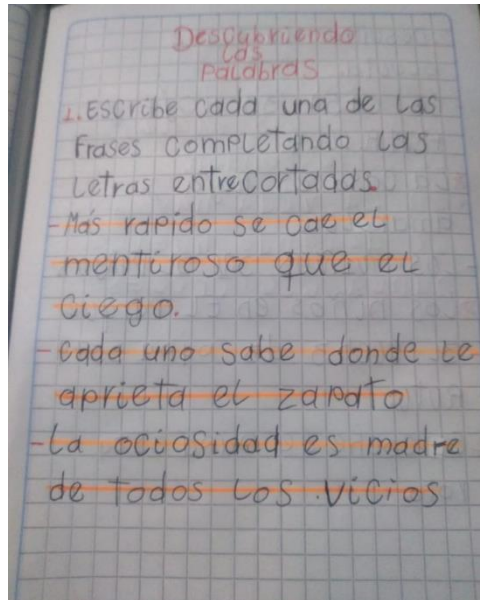 Descubriendo
las
palabras
1. Escribe cada una de las
frases completando las
letras entrecortadas.
- Más rapido se cae el
mentiroso que el
ciego.
- cada uno sabe donde le
aprieta el zapato
- La ociosidad es madre
de todos los vicios